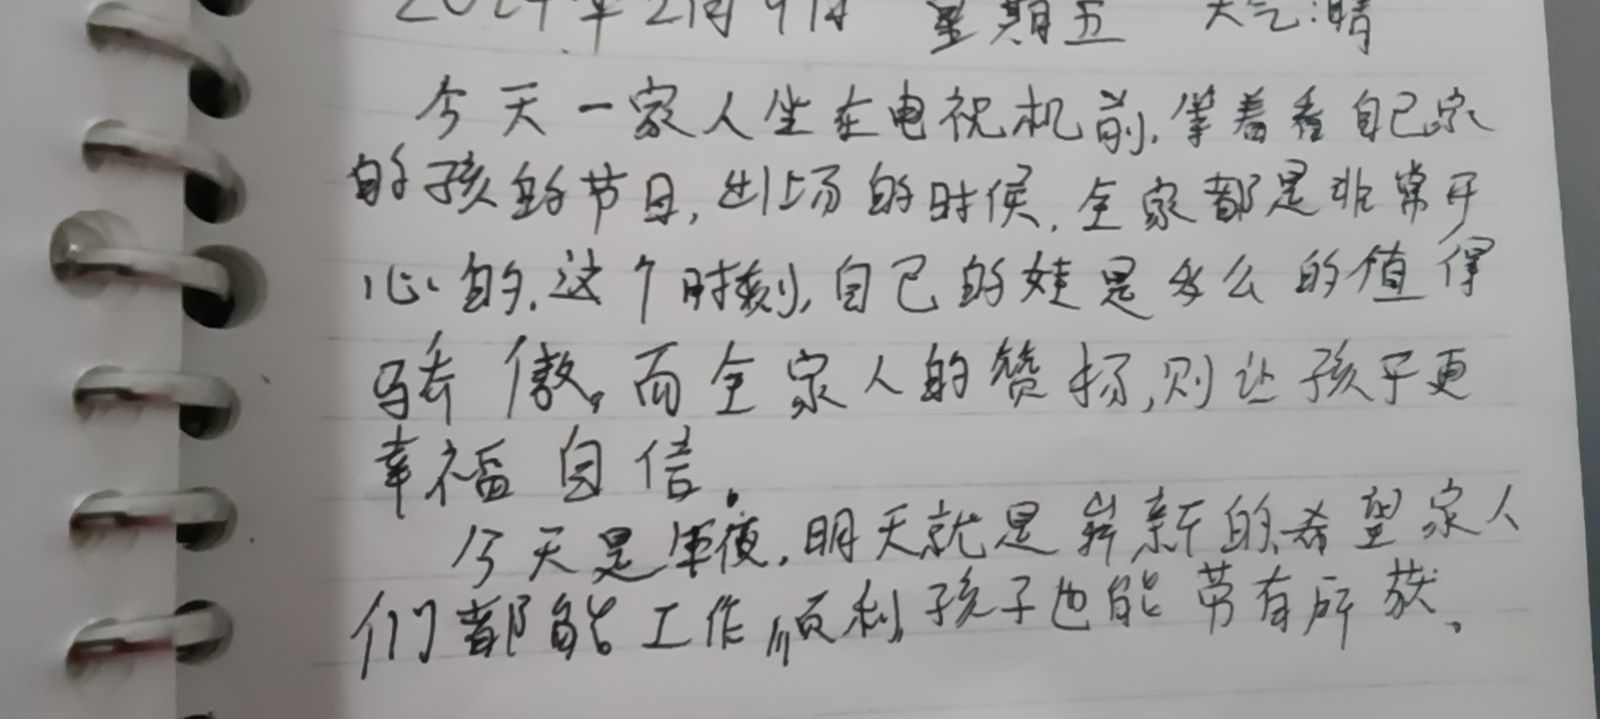 2024年2月9日 星期五 天气:晴
今天一家人坐在电视机前,等着看自己家
的孩的节目,出场的时候,全家都是非常开
心的,这个时刻,自己的娃是多么的值得
骄傲。而全家人的赞扬,则让孩子更
幸福自信。
今天是年夜,明天就是崭新的,希望家人
们都能工作顺利,孩子也能带有所获。